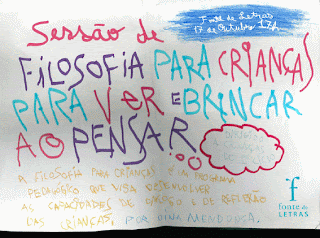 Sessão de
Fonte de Letras
17 de Outubro 17h
FILOSOFIA PARA CRIANÇAS
PARA VER E BRINCAR
AO PENSAR
A FILOSOFIA PARA CRIANÇAS É UM PROGRAMA
PEDAGÓGICO QUE VISA DESENVOLVER
AS CAPACIDADES DE DIÁLOGO E DE REFLEXÃO
DAS CRIANÇAS, POR DINA MENDONÇA.
f
fonte de
LETRAS